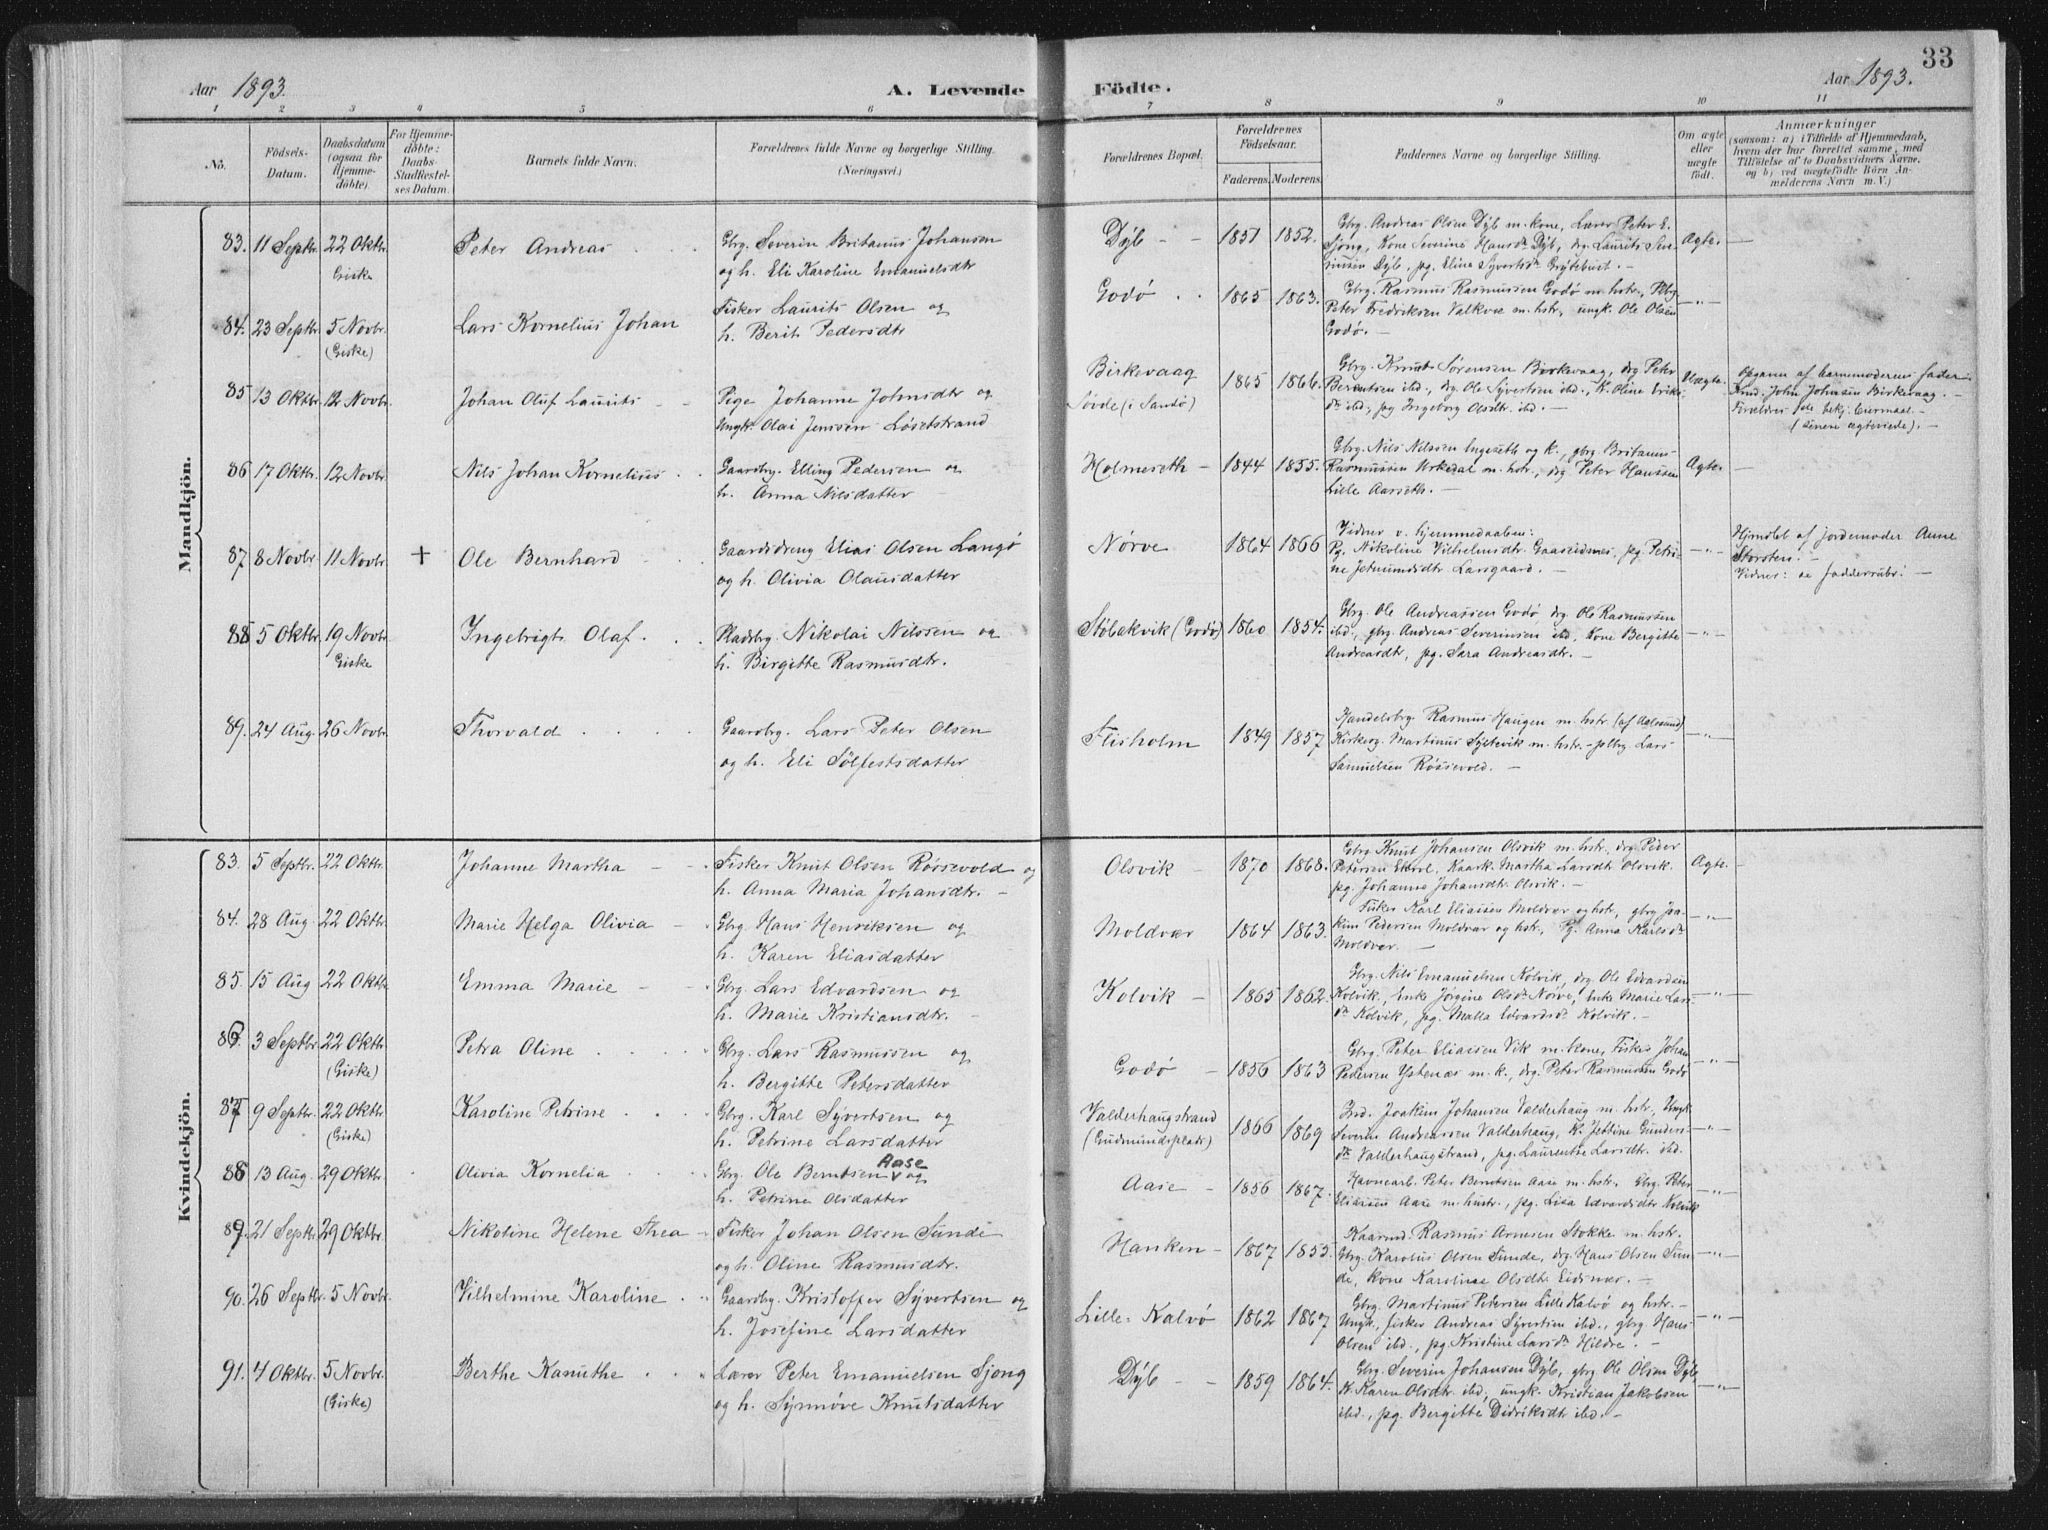 33
Aar 1893.
A. Levende
Födte.
Aar 1893.
1 2 3 4 5 6 7 8 9 10 11
No. Födsels-Datum. Daabsdatum (ogsaa for Hjemmedöbte). For Hjemmedöbte: Daabs-Stadfæstelses Datum. Barnets fulde Navn. Forældrenes fulde Navne og borgerlige Stilling. (Næringsvei.) Forældrenes Bopæl. Forældrenes Födselsaar. Faderens. Moderens. Faddernes Navne og borgerlige Stilling. Om ægte eller uægte födt. Anmærkninger (saasom: a) i Tilfælde af Hjemmedaab, hvem der har forrettet samme, med Tilföielse af to Daabsvidners Navne, og b) ved uægtefödte Börn Anmelderens Navn m. V.)
Mandkjön.
83. 11 Septbr. 22 Oktbr. Giske Peter Andreas Gbrg. Severin Britanus Johansen
og h. Eli Karoline Emanuelsdtr Dÿb 1851 1852. Gbrg. Andreas Olsen Dÿb m. kone, Lærer Peter E.
Sjong, Kone Severine Hansdr Dÿb, drg. Laurits Severinsen Dÿb, pg. Eline Syvertsdr Grytebust. Ægte.
84. 23 Septbr 5 Novbr. (Giske) Lars Kornelius Johan Fisker Laurits Olsen og
h. Berit Pedersdtr Godø 1865 1863. Gbrg. Rasmus Rasmussen Godø m. hstr.,
Peter Fredriksen Valkvæ m. hstr., ungk. Ole Olsen
Godø.
85 13 Oktbr. 12 Novbr. Johan Oluf Laurits Pige Johanne Johnsdtr og
Ungk. Olai Jensen Løsetstrand Birkevaag
Søvde (i Sandø) 1865 1866. Gbrg. Knut Sørensen Birkevaag, drg Peter
Berentsen ibd., drg. Ole Syvertsen ibd., K. Oline Eriksdr ibd., pg Ingeborg Olsdtr. ibd. Uægte. Opgavn af barnemoderens fader
Ind. John Johnsen Birkevaag.
Forældres 1de bekj. leiermaal.
(senere ægteviede).
86 17 Oktbr. 12 Novbr. Nils Johan Kornelius Gaardbrg. Elling Pedersen og
h. Anna Nilsdatter Holmeseth 1844 1855. Gbrg. Nils Nilssen Ingeseth og k., gbrg Britanus
Rasmussen Urkedal m. hstr., drg Peter Hanssen
Lille Aarseth. Ægte.
87 8 Novbr. 11 Novbr. + Ole Bernhard Gaardsdreng Elias Olsen Langø
og h. Olivia Olausdatter Nørve 1864 1866 Vidner v. hjemmedaaben:
Pg. Nikoline Vilhelmsdtr. Gaaseidnes, pg. Petrine Jetmundsdtr Larsgaard. Hjmdbt af jordemoder Anne
Storsten.
Vidner: se fadderrubr.
88 5 Oktbr. 19 Novbr. Giske Ingebrigt Olaf Pladsbrg. Nikolai Nilssen og
h. Birgitte Rasmusdtr. Støbakvik (Godø) 1860 1854. Gbrg. Ole Andreassen Godø drg Ole Rasmussen
ibd., gbrg. Andreas Severinsen ibd, Kone Bergitte
Andreasdtr, pg. Sara Andreasdtr.
89. 24 Aug. 26 Novbr. Thorvald Gaardbrg. Lars Peter Olsen
og h. Eli Sölfestsdatter Flisholm 1849 1857 Handelsbrg. Rasmus Haugen m. hstr. (af Aalesund)
Kirkesrg. Martinus Syltevik m. hstr. Lars
Samuelsen Røssevold.
Kvindekjön.
83. 5 Septbr. 22 Oktbr. Johanne Martha Fisker Knut Olsen Rörsevold og
h. Anna Maria Johansdtr. Olsvik 1870 1868. Gbrg Knut Johansen Olsvik m. hstr., drg. Peder
Petersen Ekrol, Kaark. Martha Larsdtr Olsvik.
pg. Johanne Johansdtr. Olsvik. Ægte.
84. 28 Aug. 22 Oktbr. Marie Helga Olivia Gbrg Hans Henriksen og
h. Karen Eliasdatter Moldvær 1864 1863. Fisker Karl Eliassen Moldvær og hstr., gbrg Joakim Pedersen Moldvær og hstr., Pg. Anna Karlsdr
Moldvær.
85. 15 Aug 22 Oktbr. Emma Marie Gbrg. Lars Edvardsen og
h. Marie Kristiansdtr. Kolvik 1865 1862. Gbrg. Nils Emanuelsen Kolvik, drg. Ole Edvardsen
Kolvik, Enke Jørgine Olsdr Nørve, Enke Marie Larsdr Kolvik, pg. Malla Edvardsdr Kolvik.
86. 3 Septbr. 22 Oktbr. (Giske) Petra Oline Gbrg. Lars Rasmussen og
h. Bergitte Petersdatter Godø 1856 1863 Gbrg. Peter Eliassen Vik m. kone, Fisker Johan
Pedersen Ystenæs m. k., drg. Peter Rasmussen Godø
87 9 Septbr. 22 Oktbr. (Giske) Karoline Petrine Gbrg. Karl Syvertsen og
h. Petrine Larsdatter Valderhaugstrand
(Gudmundsplads) 1866 1869 Ind. Joakim Johansen Valderhaug m. hstr., Ungk.
Severin Andreassen Valderhaug, K. Jettine Gundersdr Valderhaugstrand, pg. Laurentse Larsdtr. ibd.
88 13 Aug. 29 Oktbr. Olivia Kornelia Gbrg. Ole Berntsen Aase og
h. Petrine Olsdatter Aase 1856 1867. Havnearb. Peter Berntsen Aase m. hstr. Gbrg. Peter
Eliassen Aase m. hustr., pg. Lisa Edvardsdtr Kolvik
89. 21 Septbr. 29 Oktbr. Nikoline Helene Thea Fisker Johan Olsen Sunde
og h. Oline Rasmusdtr. Hanken 1867 1855. Kaarmd. Rasmus Arnesen Stokke m. hstr.
Gbrg. Karolus Olsen Sunde, drg. Hans Olsen Sunde, kone Karoline Olsdtr. Eidsnær.
90. 26 Septbr. 5 Novbr. Vilhelmine Karoline Gaardbrg. Kristoffer Syvertsen og
h. Josefine Larsdatter Lille-Kalvø 1862 1867 Gbrg. Martinus Petersen Lille Kalvø og hstr.
Ungk., fisker Andreas Syvertsen ibd., gbrg Hans
Olsen ibd., pg Kristine Larsdr Hildre.
91. 4 Oktbr. 5 Novbr. (Giske) Berthe Kanuthe Lærer Peter Emanuelsen Sjong
og h. Synnöve Knutsdatter Dÿb 1859 1864. Gbrg. Severin Johansen Dÿb, gbrg Ole Olsen Dÿb
K. Karen Olsdtr ibd., ungk. Kristian Jakobsen
ibd., pg. Bergitte Didriksdtr ibd.